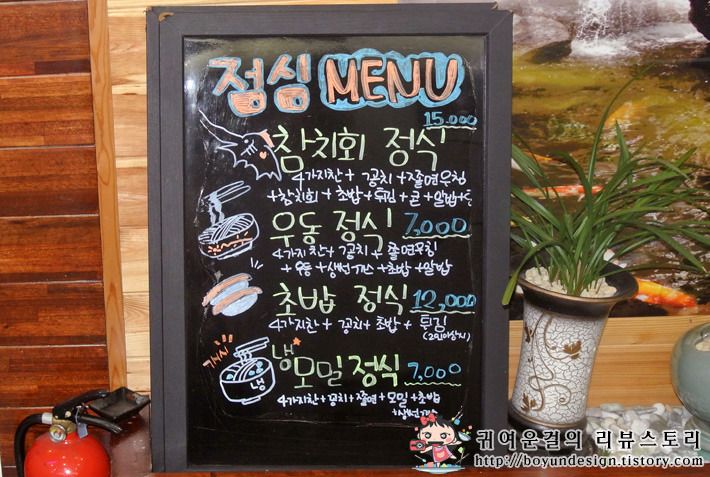 점심 MENU
15.000
참치회 정식
4가지찬 + 꽁치 + 쫄면무침
+ 참치회 + 초밥 + 튀김 + 콘 + 알밥 +
우동 정식 7,000
4가지찬 + 꽁치 + 쫄면무침
+ 우동 + 생선까스 + 초밥 + 알밥
초밥 정식 12,000
4가지찬 + 꽁치 + 초밥 + 튀김
(2인이상시)
개시
냉모밀 정식 7,000
냉
4가지찬 + 꽁치 + 쫄면 + 모밀 + 초밥
+ 생선까스
귀여운걸의 리뷰스토리
http://boyundesign.tistory.com